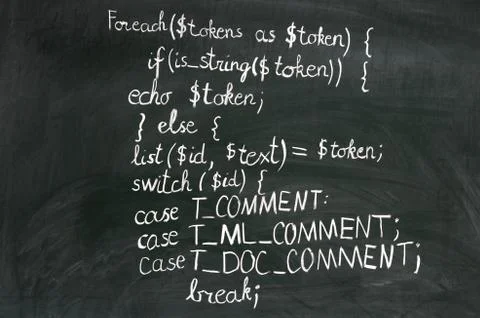 Foreach($tokens as $token) {
if(is_string($token)) {
echo $token;
} else {
list($id, $text) = $token;
switch ($id) {
case T_COMMENT:
case T_ML_COMMENT;
case T_DOC_COMMENT;
break;